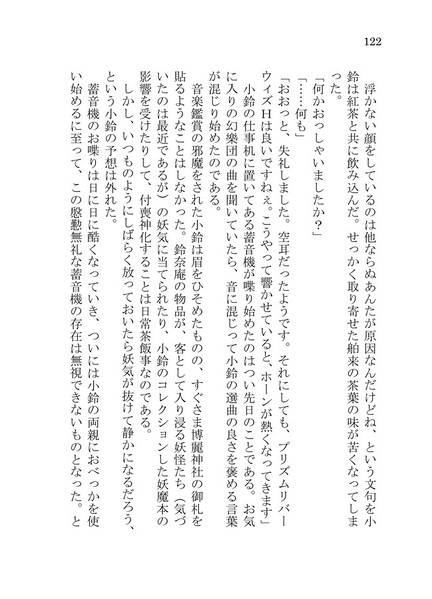 122
　浮かない顔をしているのは他ならぬあんたが原因なんだけどね、という文句を小
鈴は紅茶と共に飲み込んだ。せっかく取り寄せた舶来の茶葉の味が苦くなってしま
った。
「何かおっしゃいましたか？」
「……何も」
「おおっと、失礼しました。空耳だったようです。それにしても、プリズムリバー
ウィズHは良いですねぇ。こうやって響かせていると、ホーンが熱くなってきます」
　小鈴の仕事机に置いてある蓄音機が喋り始めたのはつい先日のことである。お気
に入りの幻樂団の曲を聞いていたら、音に混じって小鈴の選曲の良さを褒める言葉
が混じり始めたのである。
　音楽鑑賞の邪魔をされた小鈴は眉をひそめたものの、すぐさま博麗神社の御札を
貼るようなことはしなかった。鈴奈庵の物品が、客として入り浸る妖怪たち（気づ
いたのは最近であるが）の妖気に当てられたり、小鈴のコレクションした妖魔本の
影響を受けたりして、付喪神化することは日常茶飯事なのである。
　しかし、いつものようにしばらく放っておいたら妖気が抜けて静かになるだろう、
という小鈴の予想は外れた。
　蓄音機のお喋りは日に日に酷くなっていき、ついには小鈴の両親におべっかを使
い始めるに至って、この慇懃無礼な蓄音機の存在は無視できないものとなった。と